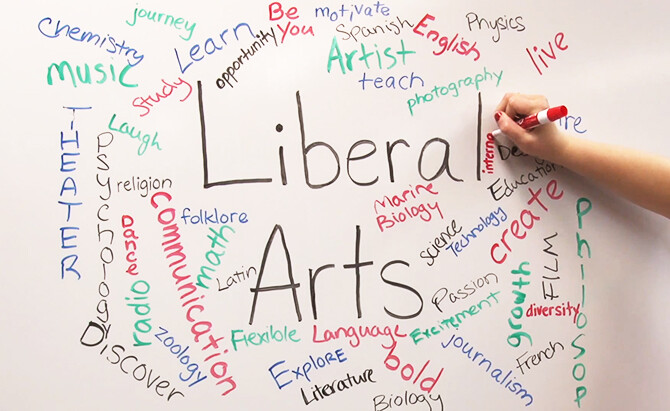 journey
Be
You
motivate
Spanish
English
Physics
live
Chemistry
Learn
opportunity
Artist
music
Study
teach
photography
Laugh
THEATER
Psychology
religion
Liberal
Education
Marine
Biology
communication
folklore
math
Dance
radio
Latin
Arts
science
Technology
create
FILM
Passion
growth
diversity
Excitement
Flexible
Language
Discover
zoology
Explore
Literature
bold
Biology
journalism
French